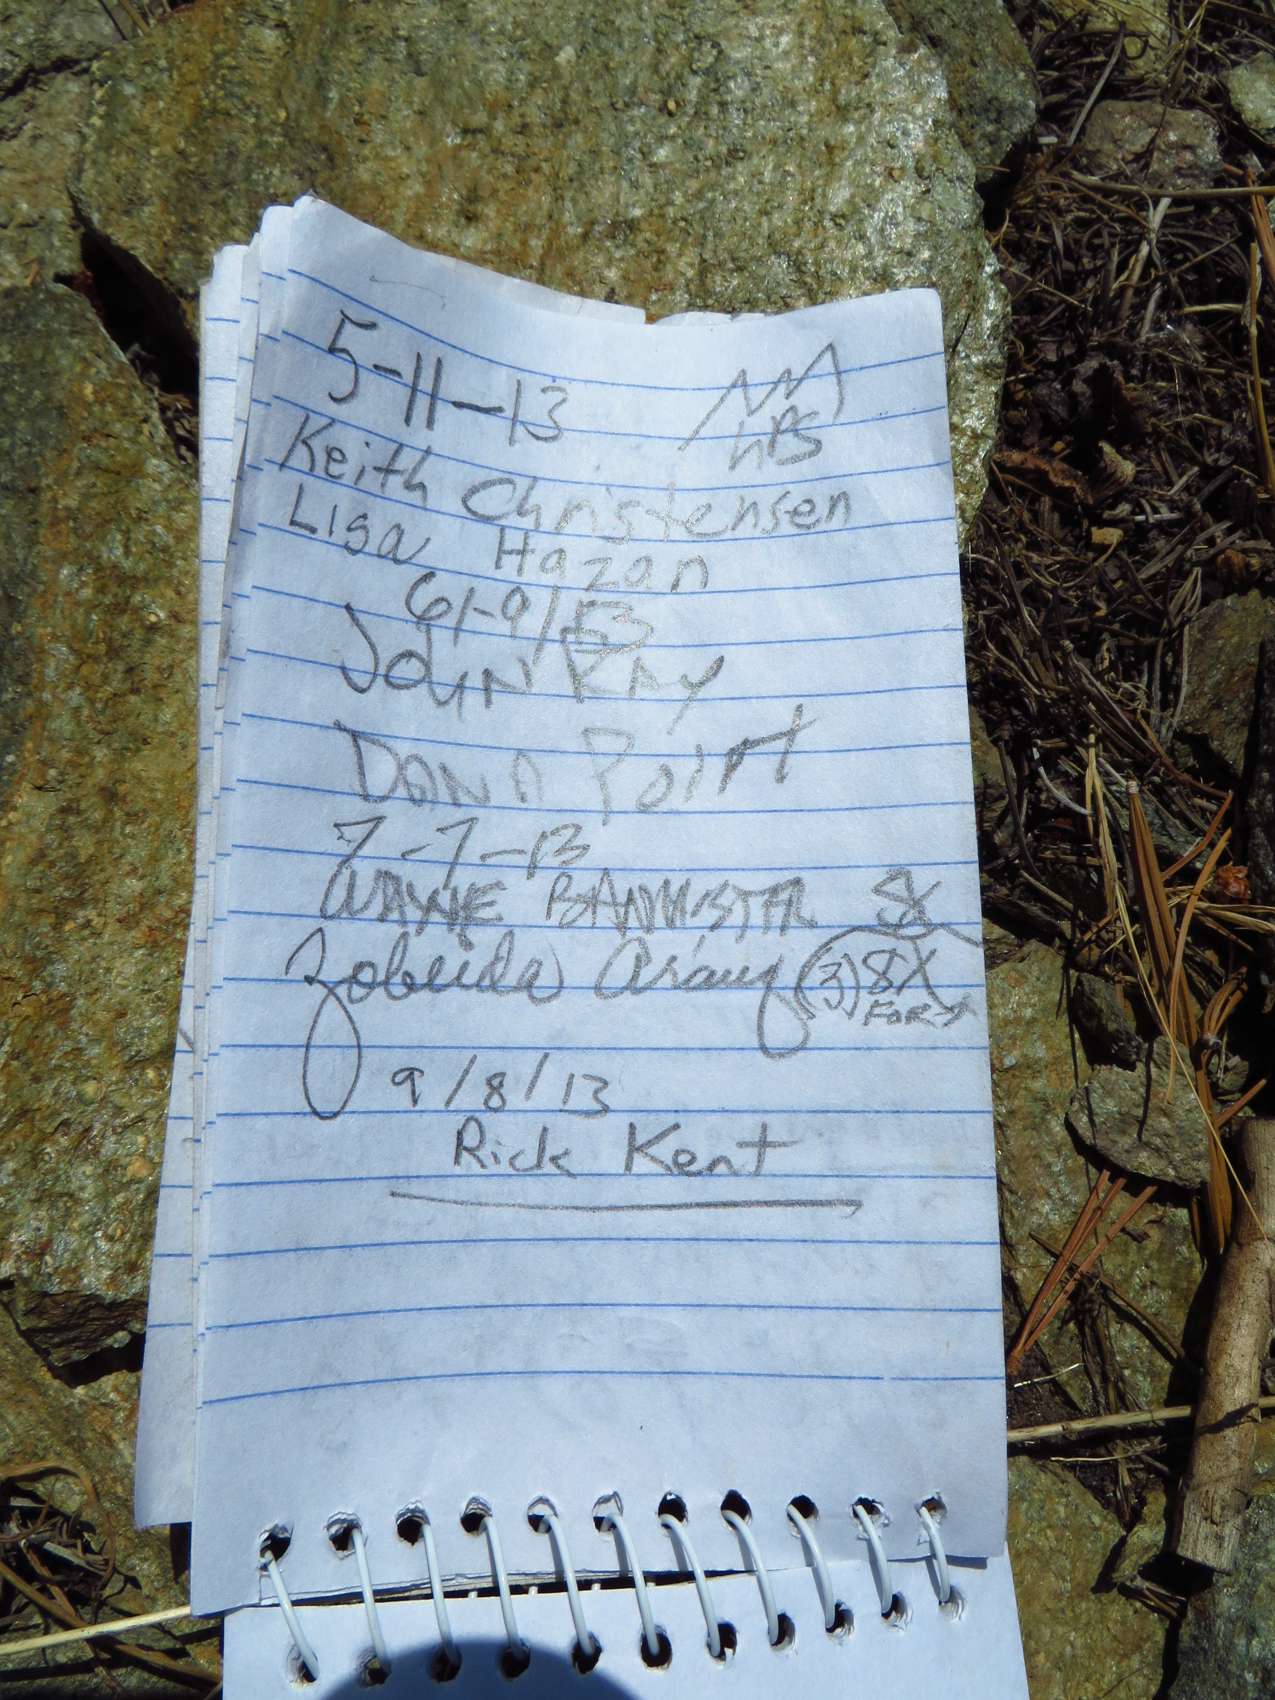 5-11-13
HPS
Keith Christensen
Lisa Hazan
6/-9/13
JOHN RAY
DANA POINT
7-7-13
WAYNE BANNISTER 8X
Zobeida Arauz (3) 8X
FOR
9/8/13
Rick Kent